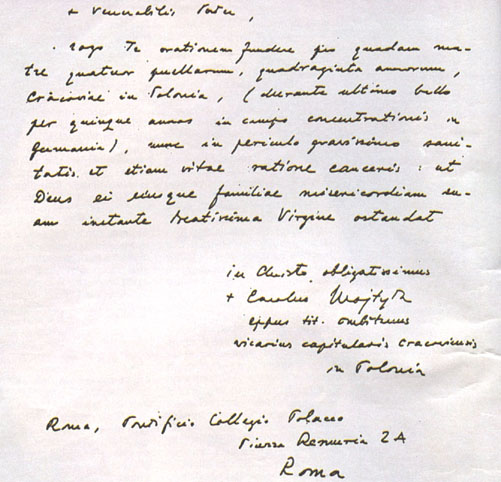 + Venerabilis Pater,
rogo Te orationem fundere pro quadam ma-
tre quatuor puellarum, quadraginta annorum,
Cracoviae in Polonia, (durante ultimo bello
per quinque annos in campo concentrationis in
Germania), nunc in periculo gravissimo sani-
tatis et etiam vitae ratione canceris: ut
Deus ei eiusque familiae misericordiam su-
am instante Beatissima Virgine ostendat
in Christo obligatissimus
+ Carolus Wojtyła
eppus tit. ombitanus
vicarius capitularis Cracoviensis
in Polonia
Roma, Pontificio Collegio Polacco
Piazza Remuria 2A
Roma